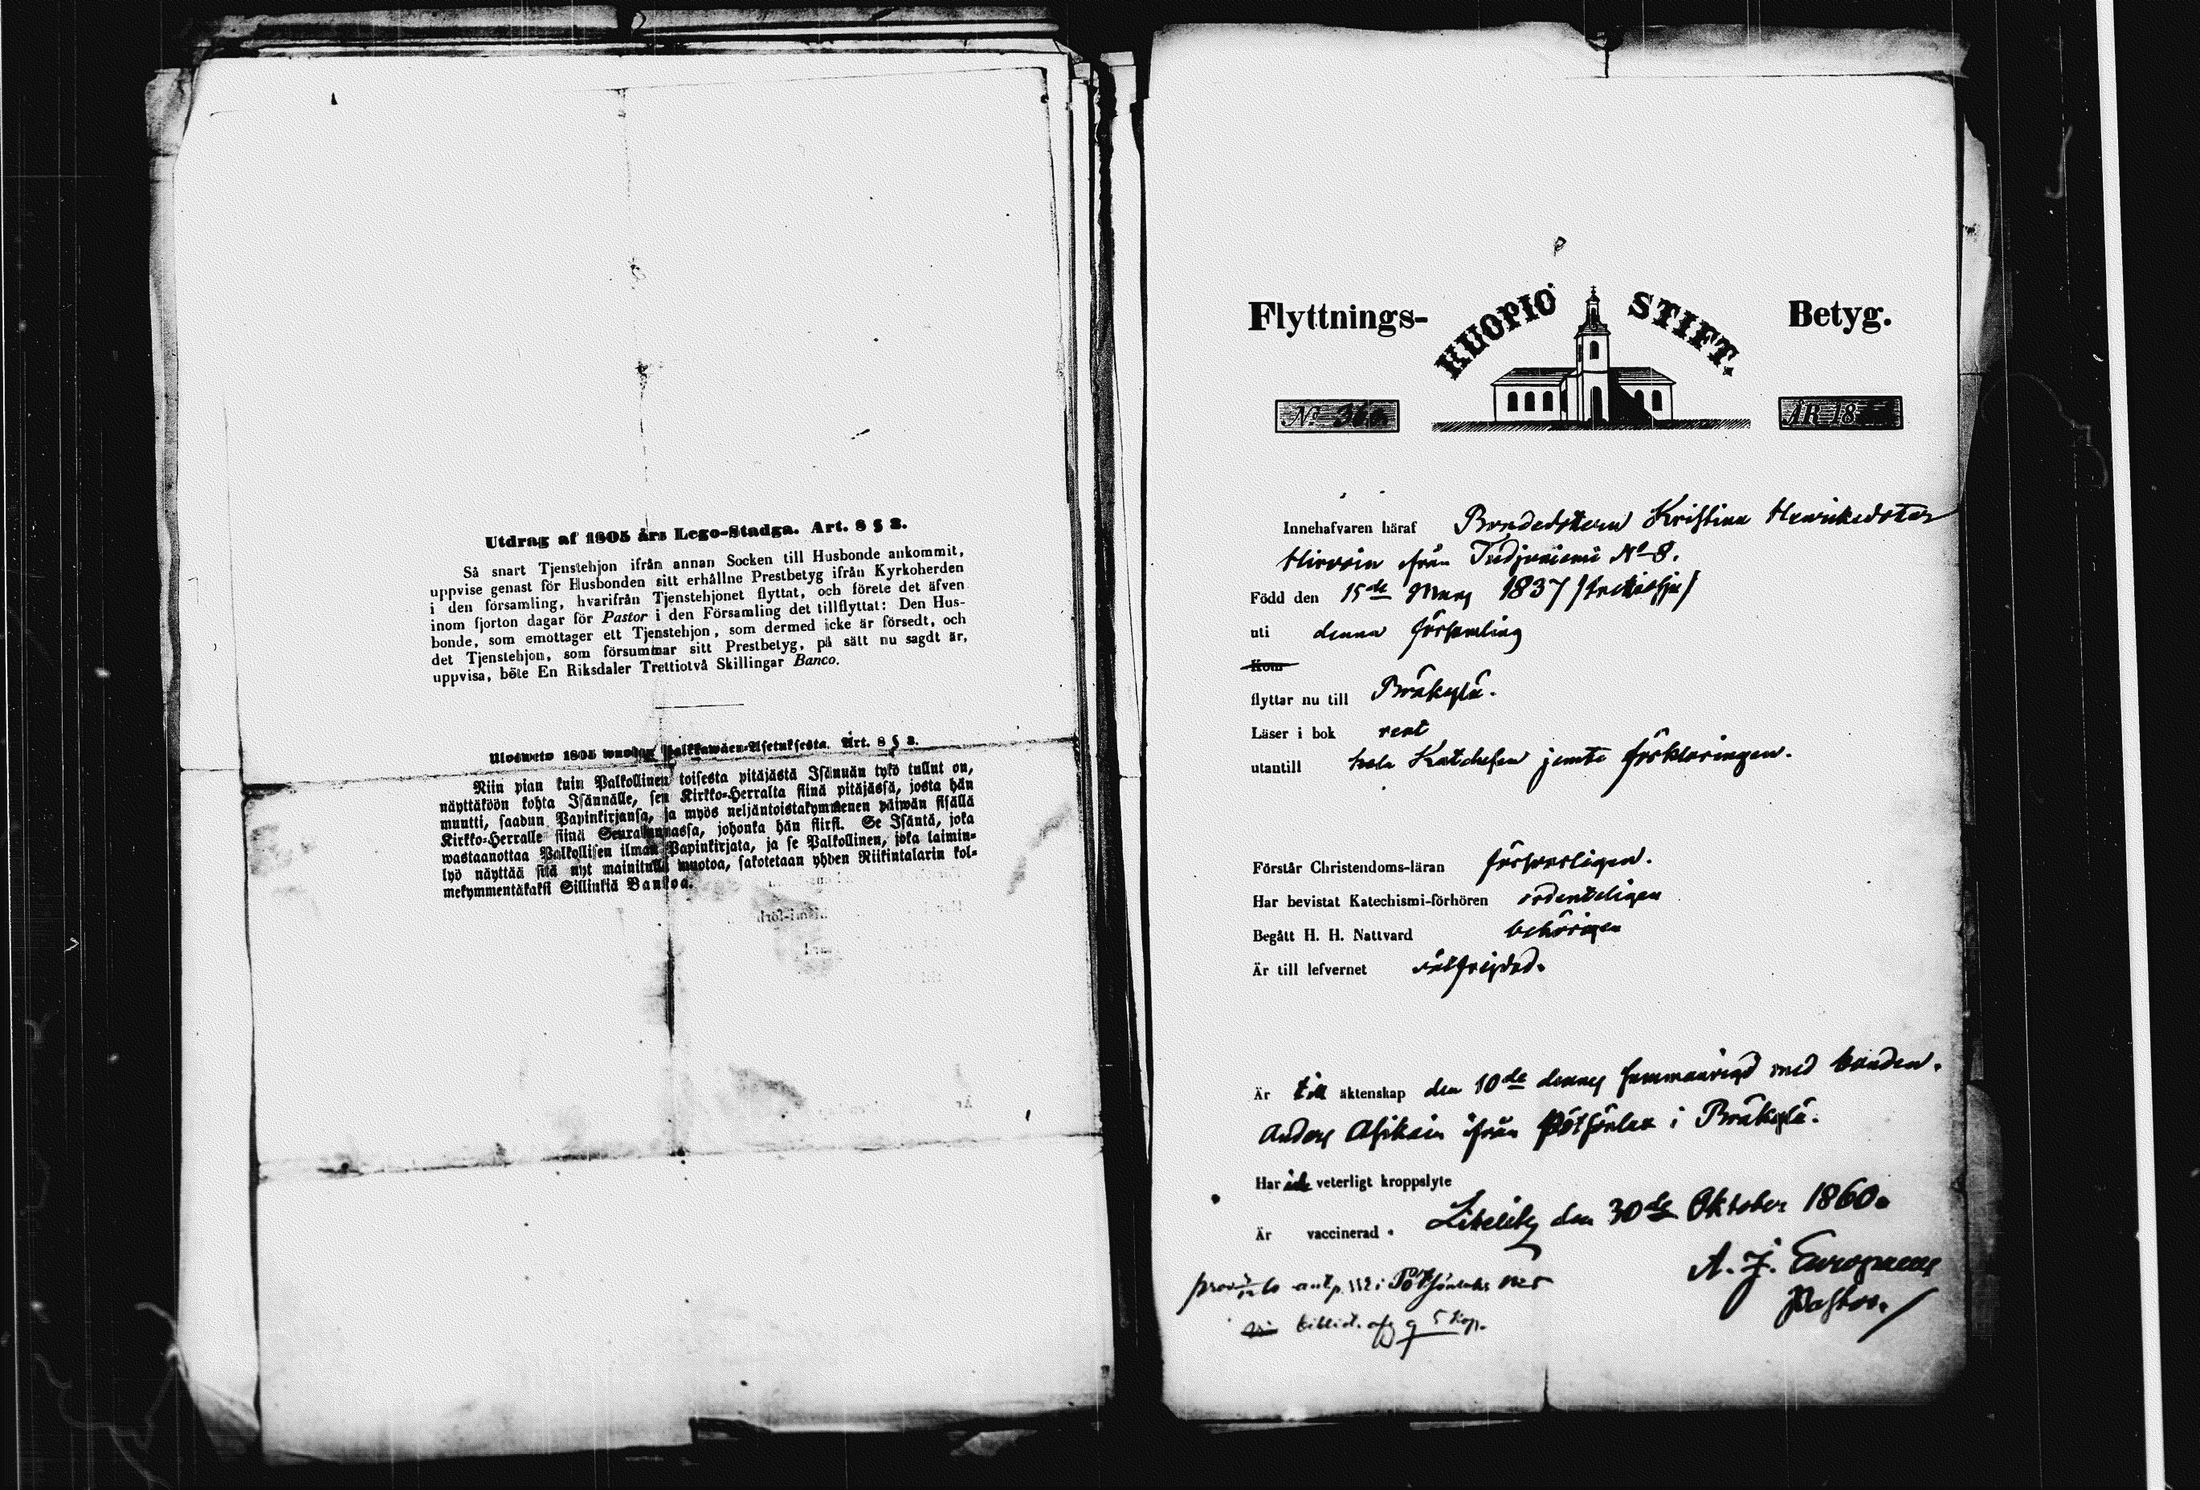 Utdrag af 1805 års Lego-Stadga. Art. 8 § 2.
Så snart Tjenstehjon ifrån annan Socken till Husbonde ankommit,
uppvise genast för Husbonden sitt erhållne Prestbetyg ifrån Kyrkoherden
i den församling, hvarifrån Tjenstehjonet flyttat, och förete det äfven
inom fjorton dagar för Pastor i den Församling det tillflyttat: Den Hus-
bonde, som emottager ett Tjenstehjon, som dermed icke är försedt, och
det Tjenstehjon, som försummar sitt Prestbetyg, på sätt nu sagdt är,
uppvisa, böte En Riksdaler Trettiotvå Skillingar Banco.
Ulosweto 1805 wuoden Palkkawäen-Asetuksesta. Art. 8 § 2.
Niin pian kuin Palkollinen toisesta pitäjästä Isännän tykö tullut on,
näyttäköön kohta Isännälle, sen Kirkko-Herralta siinä pitäjässä, josta hän
muutti, saadun Papinkirjansa, ja myös neljäntoistakymmenen päiwän sisällä
Kirkko-Herralle siinä Seurakunnassa, johonka hän siirsi. Se Isäntä, joka
wastaanottaa Palkollisen ilman Papinkirjata, ja se Palkollinen, joka laimin-
lyö näyttää sitä nyt mainitulla muotoa, sakotetaan yhden Riikintalarin kol-
mekymmentäkaksi Sillinkiä Bankoa.
Flyttnings- KUOPIO STIFT. Betyg.
No ÅR 18
Innehafvaren häraf Bondedottern Kristina Henriksdotter
Hirvoin ifrån No 8.
Född den 15de Mars 1837 /trettiosju/
uti denna församling
Kom
flyttar nu till Bräkylä.
Läser i bok rent
utantill hela Katechesen jemte förklaringen.
Förstår Christendoms-läran försvarligen.
Har bevistat Katechismi-förhören ordenteligen
Begått H. H. Nattvard behörigen
Är till lefvernet välfrejdad.
Är till äktenskap den 10de dennes sammanvigd med bonden
Anders Asikain ifrån Pötsönlax i Bräkylä.
Har icke veterligt kroppslyte
Är vaccinerad. Libelits den 30de Oktober 1860.
A. J. Europaeus
Pastor.